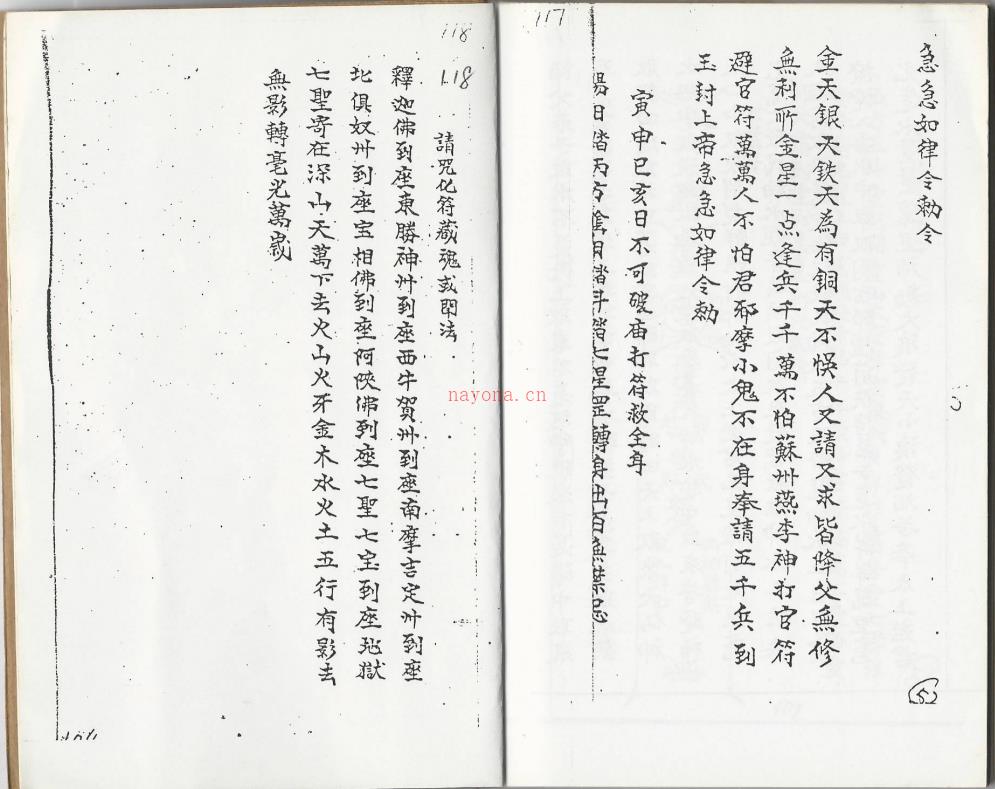 117
急急如律令勅令
金天銀天鉄天為有銅天不悞人又請又求皆降父無修
無利所金星一点逢兵千千萬不怕蘇州燕李神打官符
避官符萬萬人不怕君邪摩小鬼不在身奉請五千兵到
玉封上帝急急如律令勅
寅申巳亥日不可破庙打符救全身
陽日踏丙方陰日踏斗踏七星罡轉身出百無禁忌
5
118
118
請咒化符藏魂或用法
釋迦佛到座東勝神州到座西牛賀州到座南摩吉定州到座
北俱奴州到座宝相佛到座阿佛到座七聖七宝到座地獄
七聖寄在深山天萬下去火山火牙金木水火土五行有影去
無影轉毫光萬歲
nayona.cn